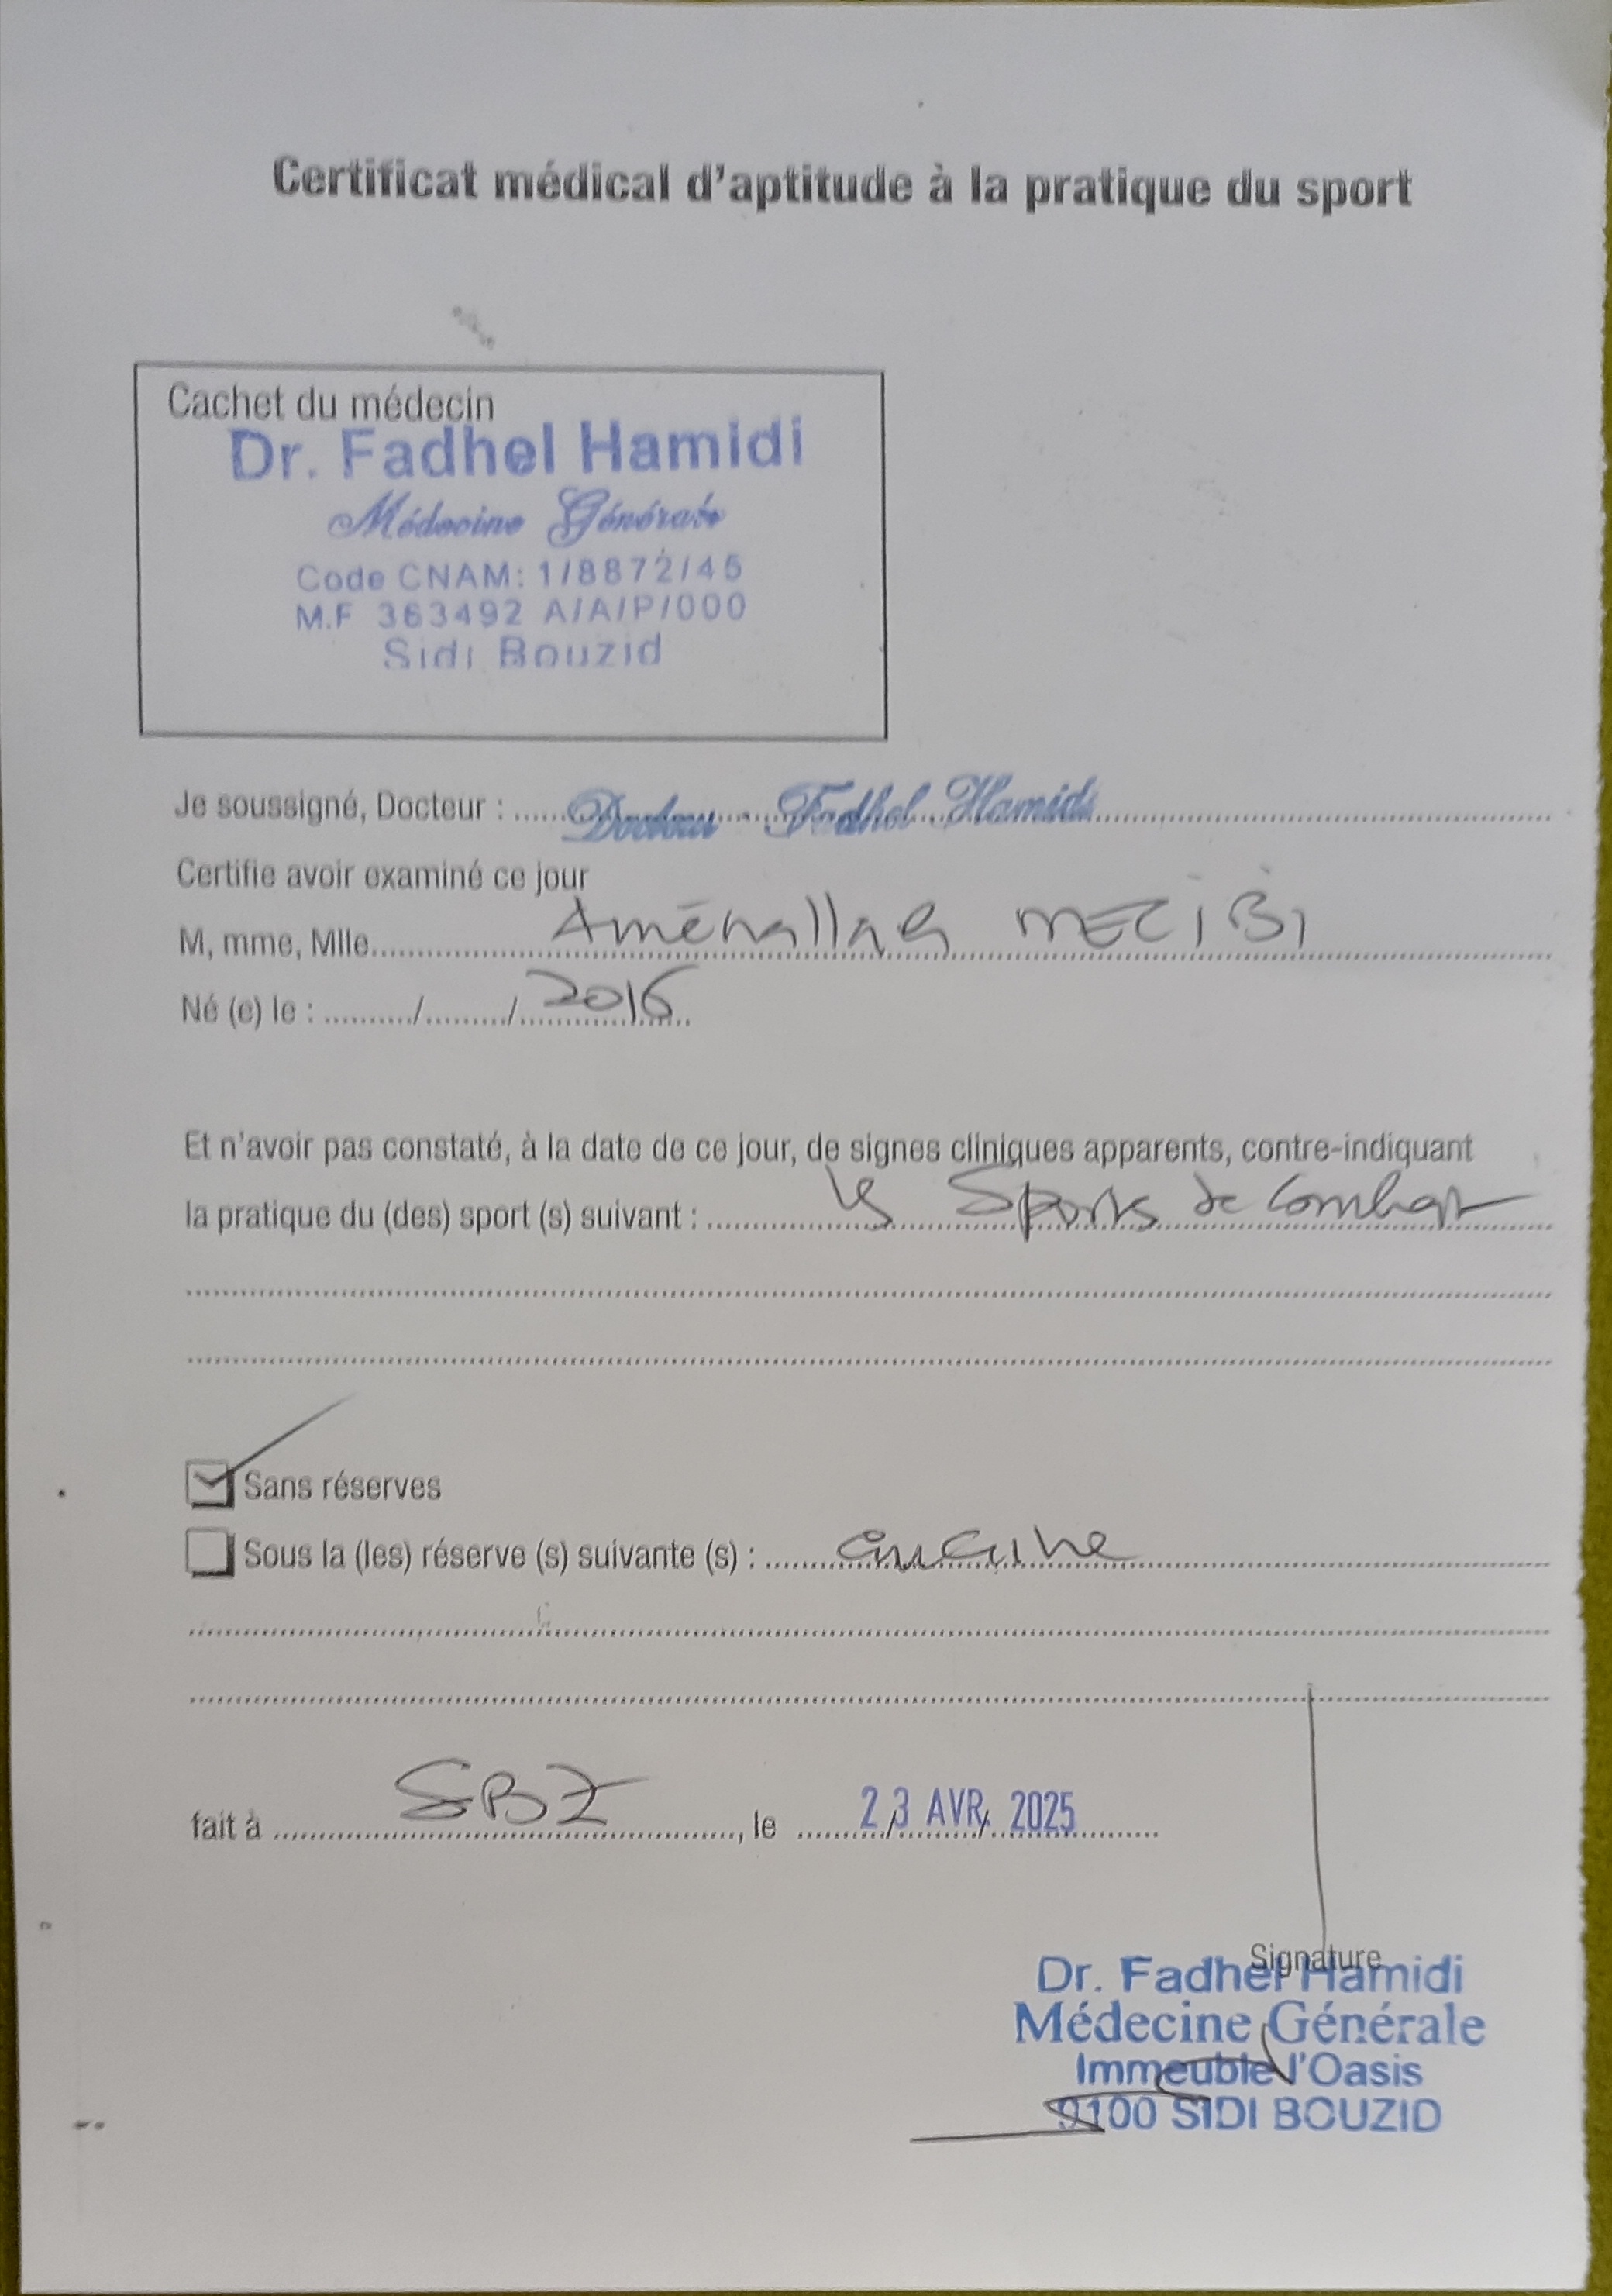 Certificat médical d'aptitude à la pratique du sport
Cachet du médecin
Dr. Fadhel Hamidi
Médecine Générale
Code CNAM: 1/8872/45
M.F 363492 A/A/P/000
Sidi Bouzid
Je soussigné, Docteur : Docteur Fadhel Hamidi
Certifie avoir examiné ce jour
M, mme, Mlle Aménallah MECIBI
Né (e) le : ........../........./ 2016
Et n'avoir pas constaté, à la date de ce jour, de signes cliniques apparents, contre-indiquant
la pratique du (des) sport (s) suivant : les Sports de Combat
Sans réserves
Sous la (les) réserve (s) suivante (s) : aucune
fait à SBZ, le 23 AVR. 2025
Signature
Dr. Fadhel Hamidi
Médecine Générale
Immeuble l'Oasis
9100 SIDI BOUZID